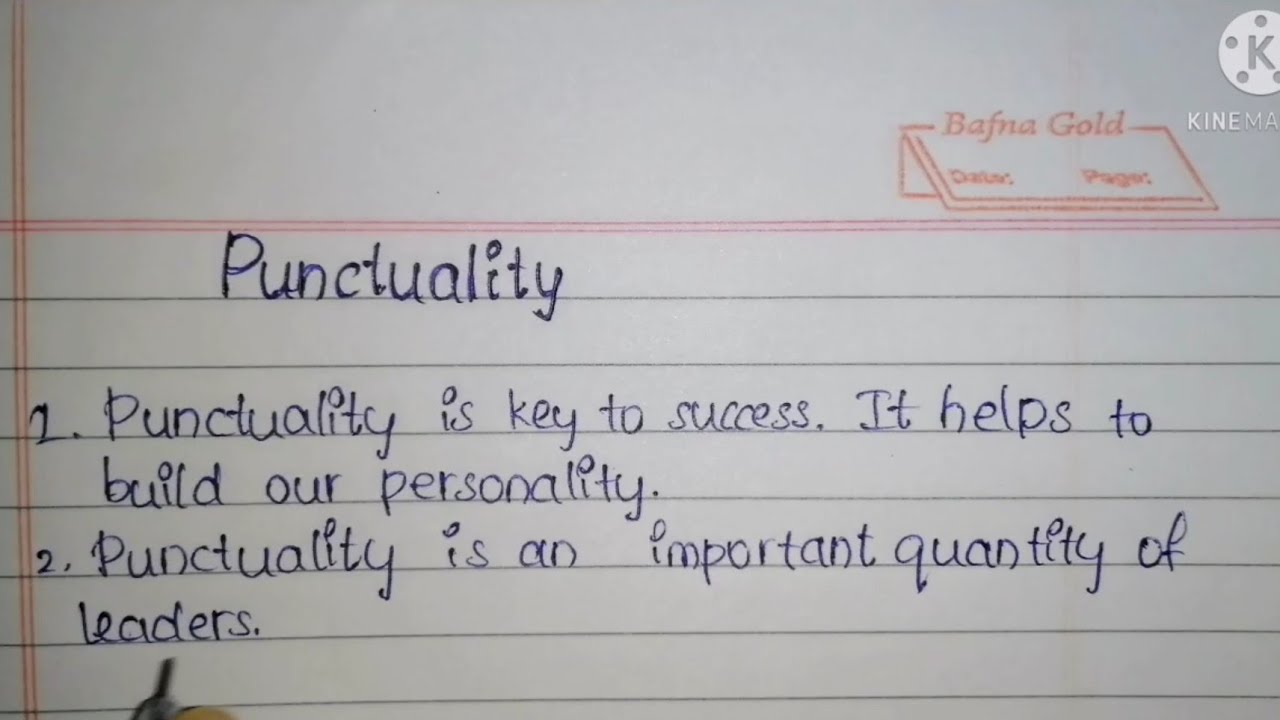 K
KINEMA
Bafna Gold
Date: Page:
Punctuality
1. Punctuality is key to success. It helps to
build our personality.
2. Punctuality is an important quantity of
leaders.